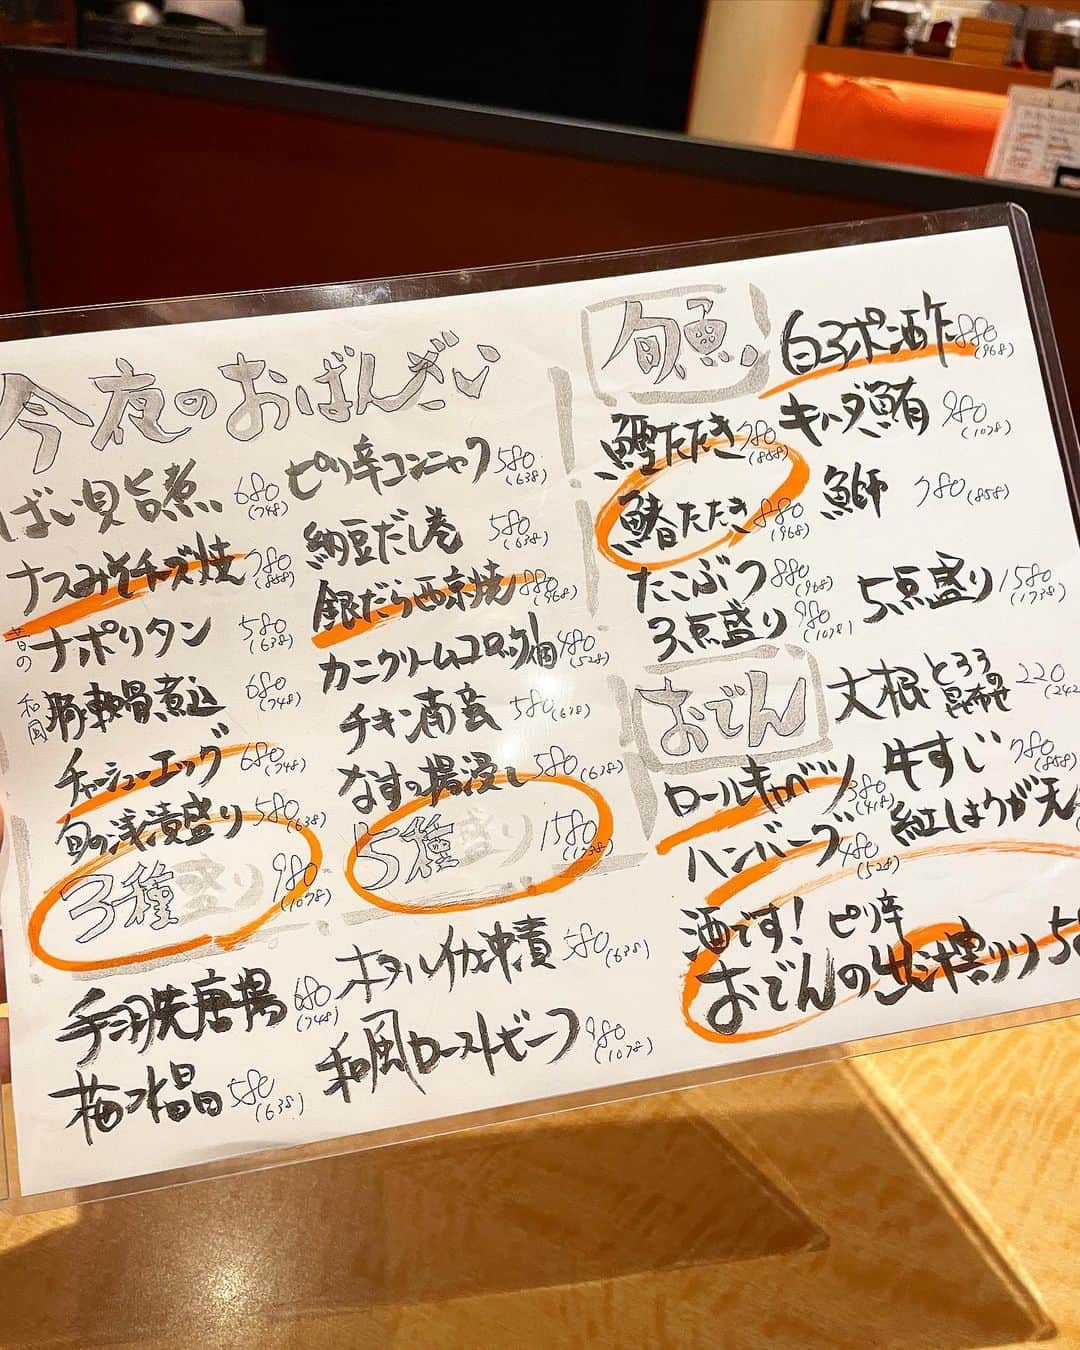 今夜のおばんざい
ばい貝旨煮 680 (748)
ナスみそチーズ焼 780 (858)
昔のナポリタン 580 (638)
和風豚軟骨煮込 680 (748)
チャーシューエッグ 680 (748)
旬の浅漬盛り 580 (638)
3種盛り 980 (1078)
手羽先唐揚 680 (748)
梅水晶 580 (638)
ピリ辛コンニャク 580 (638)
納豆だし巻 580 (638)
銀だら西京焼 880 (968)
カニクリームコロッケ1個 480 (528)
チキン南蛮 580 (638)
なすの揚浸し 580 (638)
5種盛り 1580 (1738)
ホタルイカ沖漬 580 (638)
和風ローストビーフ 980 (1078)
旬魚
白子ポン酢 880 (968)
鰹たたき 780 (858)
キハダ鮪 980 (1078)
鰆たたき 880 (968)
鰤 780 (858)
たこぶつ 880 (968)
3点盛り 980 (1078)
5点盛り 1580 (1738)
おでん
大根とろろ昆布のせ 220 (242
ロールキャベツ 380 (418)
牛すじ 780 (858)
ハンバーグ 480 (528)
紅しょうが天
酒です! ピリ辛
おでんの出汁割り 5